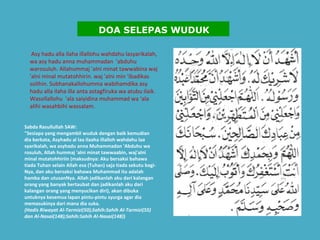 DOA SELEPAS WUDUK
Asy hadu alla ilaha illallohu wahdahu lasyarikalah,
wa asy hadu anna muhammadan 'abduhu
warosuluh. Allahummaj 'alni minat tawwabina waj
'alni minal mutatohhirin. waj 'alni min 'Ibadikas
solihin. Subhanakallohumma wabihamdika asy
hadu alla ilaha illa anta astagfiruka wa atubu ilaik.
Wasollallohu 'ala saiyidina muhammad wa 'ala
alihi wasahbihi wassalam.
Sabda Rasullullah SAW:
"Sesiapa yang mengambil wuduk dengan baik kemudian
dia berkata, Asyhadu al lau ilaaha illalloh wahdahu laa
syarikalah, wa asyhadu anna Muhammadan 'Abduhu wa
rosuluh, Allah hummaj 'alni minat tawwaabin, waj'alni
minal mutatohhiriin (maksudnya: Aku bersaksi bahawa
tiada Tuhan selain Allah esa (Tuhan) saja tiada sekutu bagi-
Nya, dan aku bersaksi bahawa Muhammad itu adalah
hamba dan utusanNya. Allah jadikanlah aku dari kalangan
orang yang banyak bertaubat dan jadikanlah aku dari
kalangan orang yang menyucikan diri), akan dibuka
untuknya kesemua lapan pintu-pintu syurga agar dia
memasukinya dari mana dia suka.
(Hadis Riwayat At-Tarmizi[50];Sahih:Sahih At-Tarmizi(55)
dan Al-Nasai[148];Sahih:Sahih Al-Nasai(148))